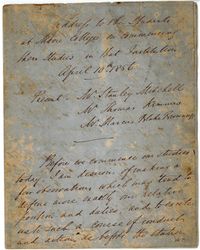 address to the Students
at Moore College on commencing
their Studies in that Institution
April 10th 1856
Present - Mr Stanley Mitchell
Mr Thomas Kemmis
Mr Marcus Blake
Before we commence our studies
today I am desirous of making a
few observations which may tend to
define more exactly our relative
position and duties, and to excite
such a course of conduct
and action as befits the